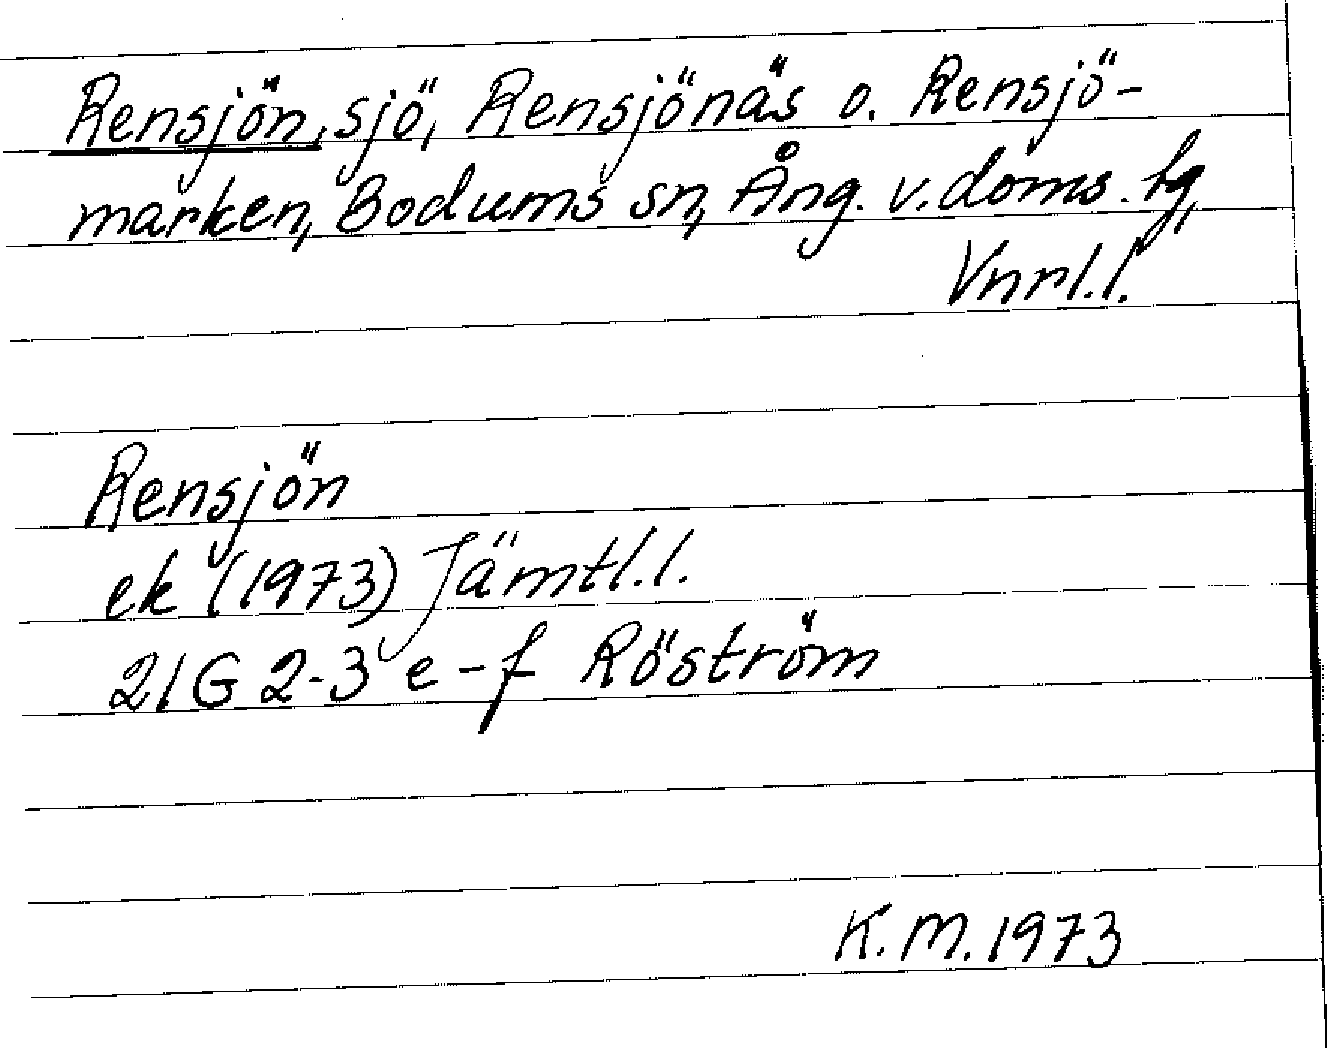 Rensjön, sjö, Rensjönäs o. Rensjö-
marken, Bodums sn, Ång. v. doms. tg,
Vnrl.l.
Rensjön
ek (1973) Jämtl.l.
21G 2-3 e-f Röström
K.M. 1973